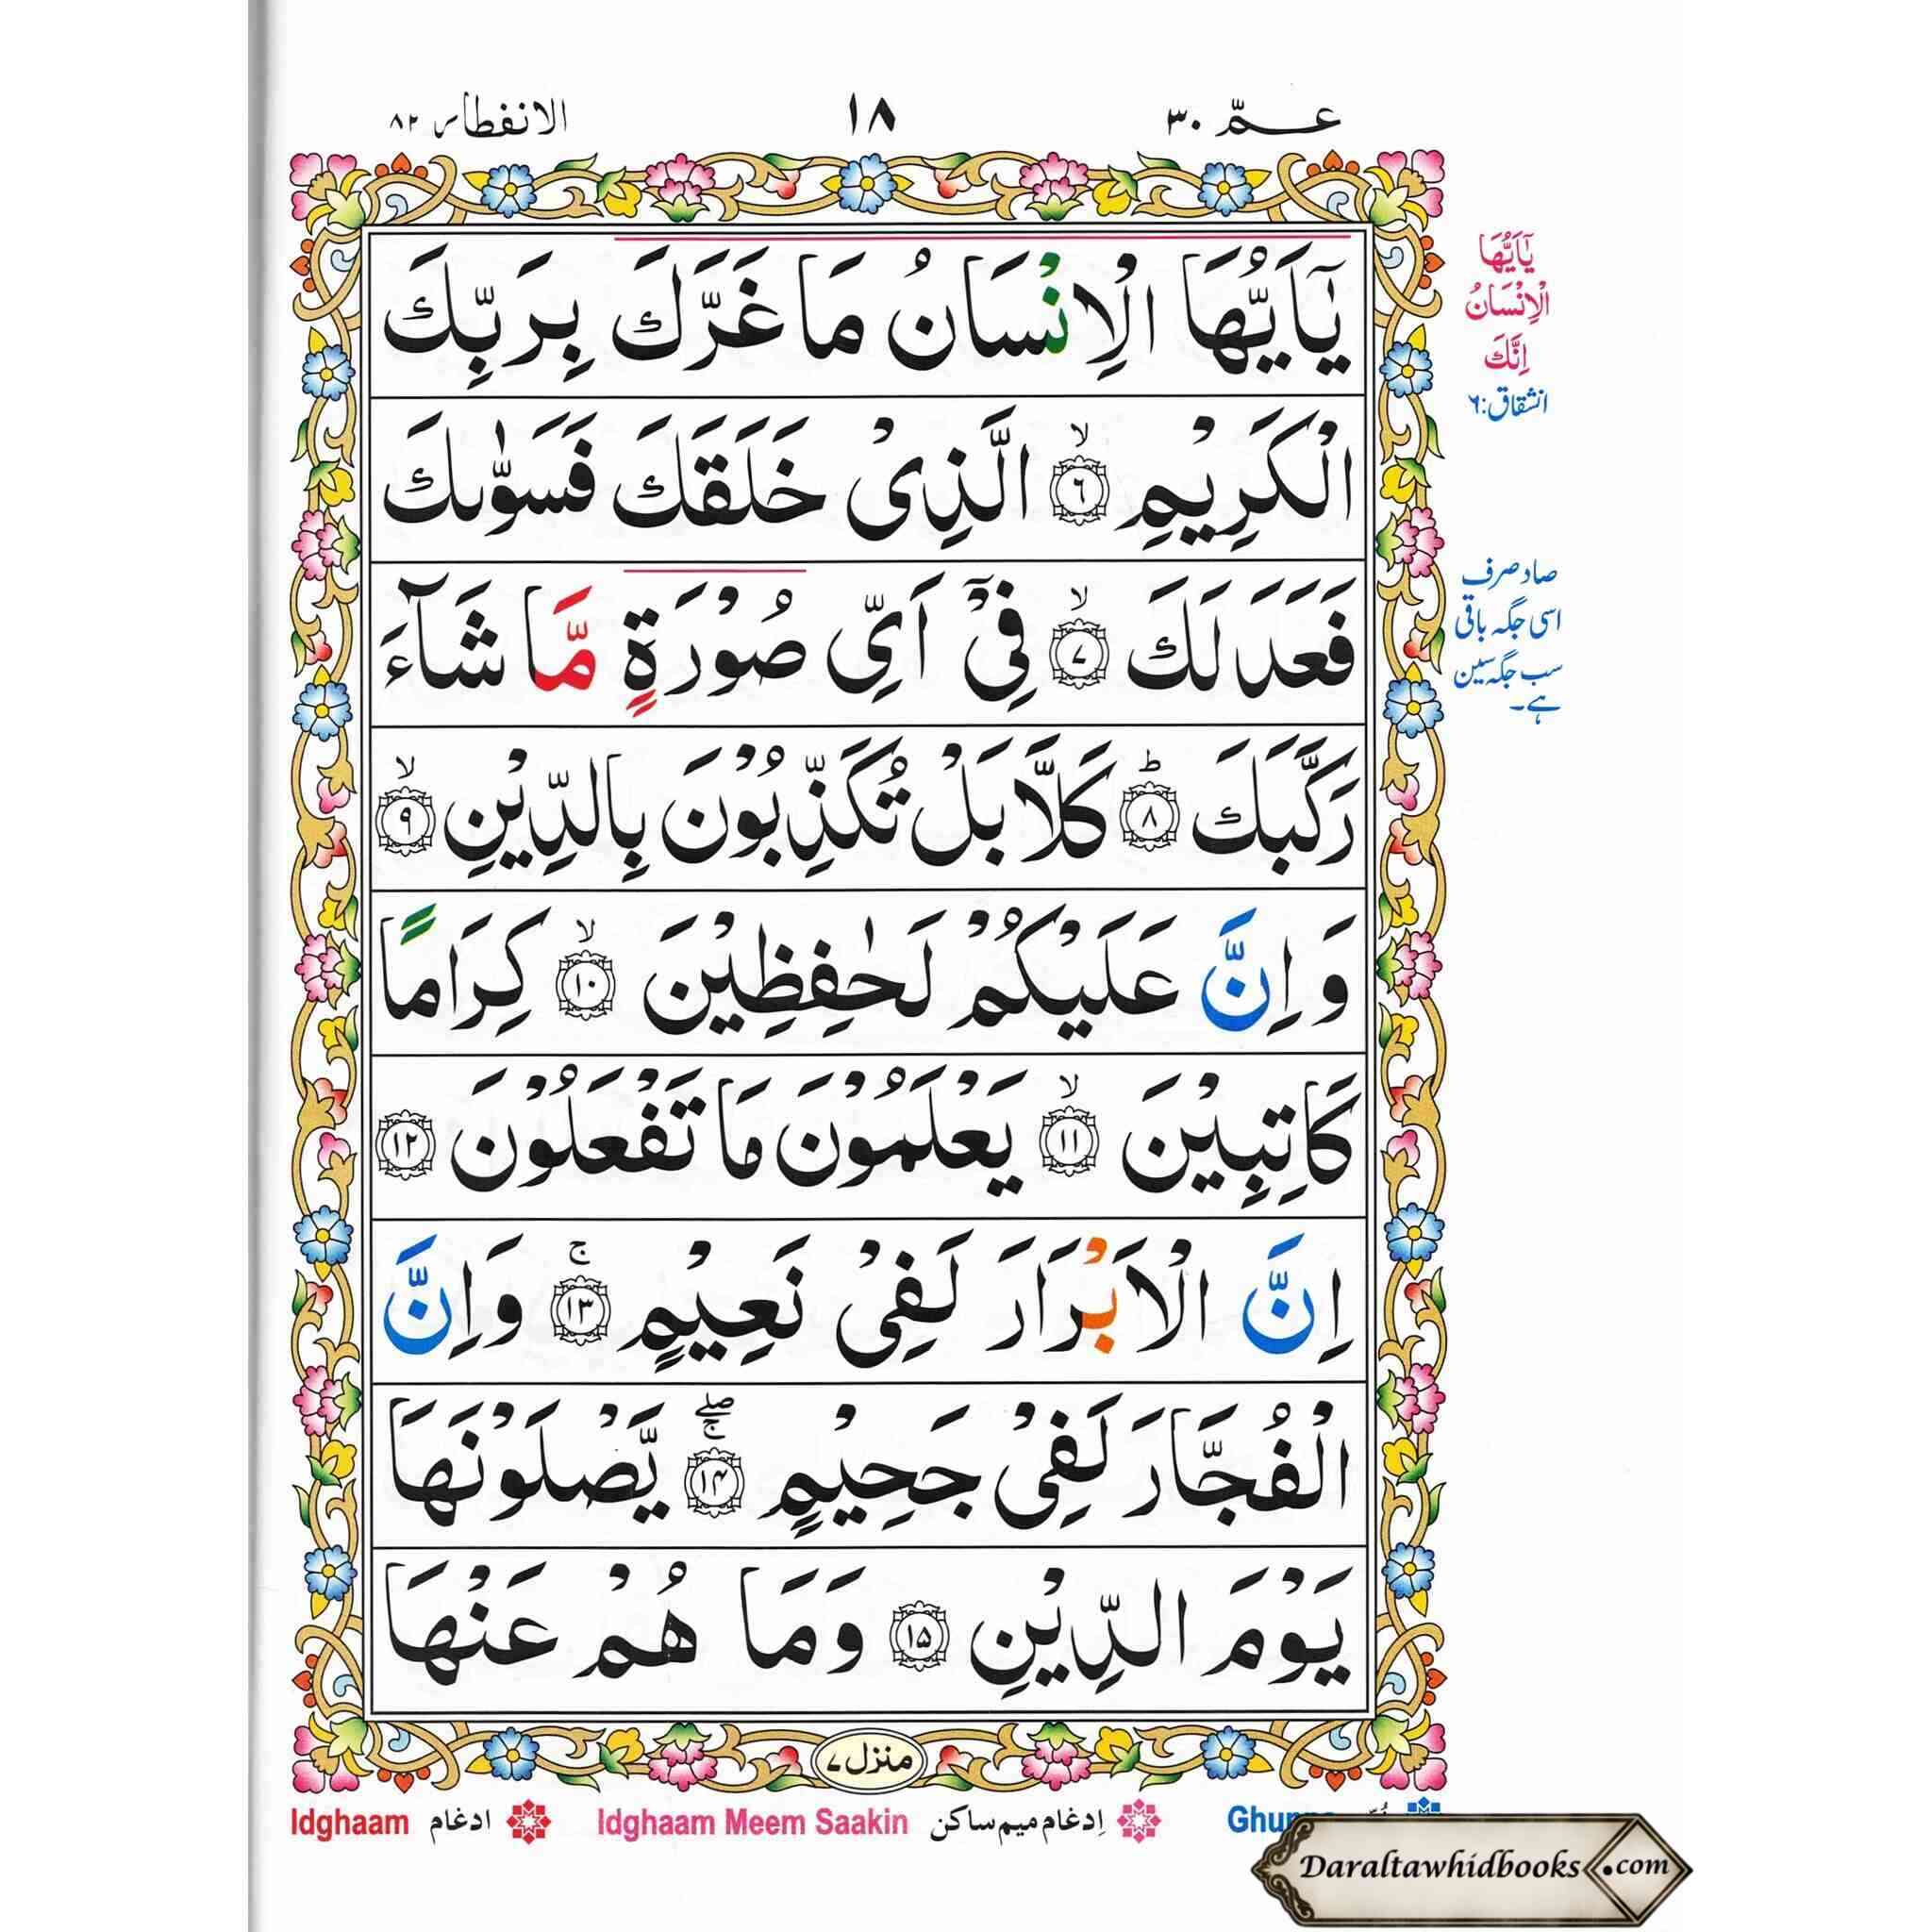 عـمّ ٣٠
١٨
الانفطار ٨٢
يٰۤاَيُّهَا الْاِنْسَانُ مَا غَرَّكَ بِرَبِّكَ
الْكَرِيْمِ ۙ﴿٦﴾ الَّذِىْ خَلَقَكَ فَسَوّٰىكَ
فَعَدَلَكَ ۙ﴿٧﴾ فِىْۤ اَىِّ صُوْرَةٍ مَّا شَآءَ
رَكَّبَكَ ؕ﴿٨﴾ كَلَّا بَلْ تُكَذِّبُوْنَ بِالدِّيْنِ ۙ﴿٩﴾
وَ اِنَّ عَلَيْكُمْ لَحٰفِظِيْنَ ۙ﴿١٠﴾ كِرَامًا
كَاتِبِيْنَ ۙ﴿١١﴾ يَعْلَمُوْنَ مَا تَفْعَلُوْنَ ﴿١٢﴾
اِنَّ الْاَبْرَارَ لَفِىْ نَعِيْمٍ ۚ﴿١٣﴾ وَاِنَّ
الْفُجَّارَ لَفِىْ جَحِيْمٍ ۚۖ﴿١٤﴾ يَّصْلَوْنَهَا
يَوْمَ الدِّيْنِ ﴿١٥﴾ وَمَا هُمْ عَنْهَا
يٰۤاَيُّهَا
الْاِنْسَانُ
اِنَّكَ
انشقاق:٦
صاد صرف
اسی جگہ باقی
سب جگہ سین
ہے۔
منزل ٧
Idghaam ادغام
Idghaam Meem Saakin اِدغام میم ساکن
Daraltawhidbooks.com